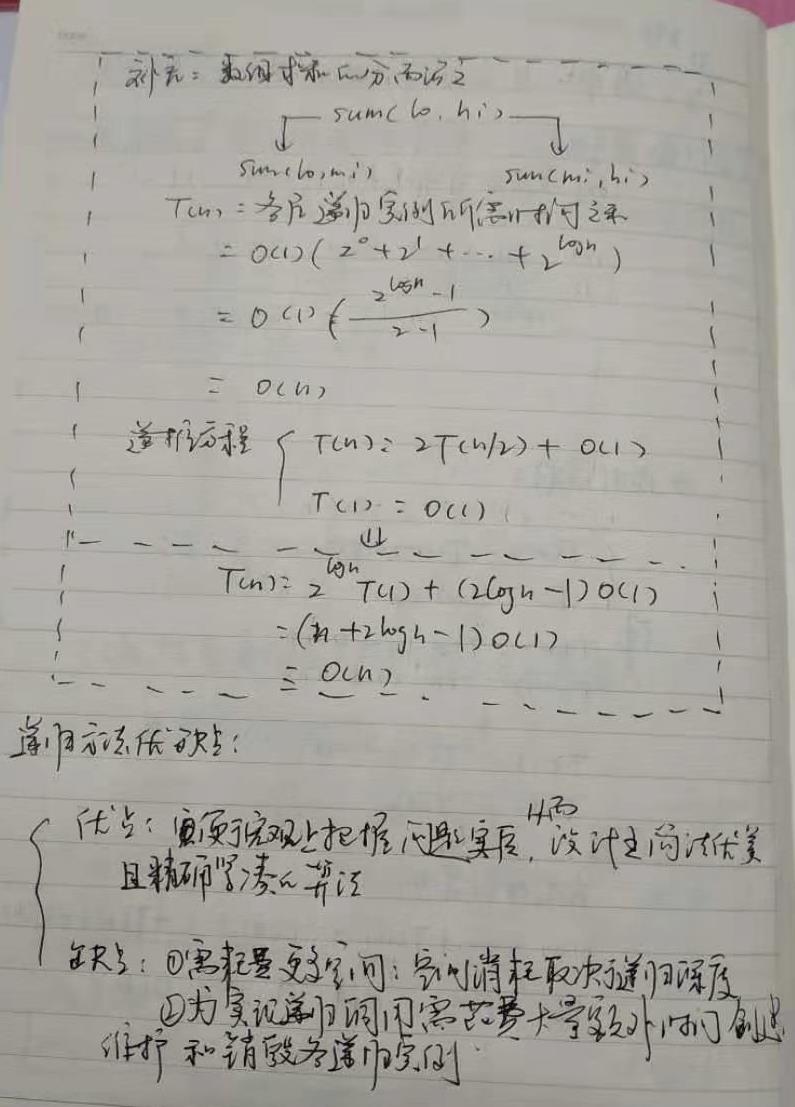 补充：数组求和的分而治之
sum(lo, hi)
sum(lo,mi) sum(mi,hi)
T(n) = 各层递归实例所需时间之和
= O(1)( 2⁰ + 2¹ + ... + 2^logn )
= O(1)( (2^logn - 1)/(2-1) )
= O(n)
递推方程 { T(n) = 2T(n/2) + O(1)
T(1) = O(1)
⇓
T(n) = 2^logn T(1) + (2logn-1)O(1)
= (n+2logn-1)O(1)
= O(n)
递归方法优缺点：
优点：更便于宏观上把握问题实质，从而设计出简洁优美
且精确紧凑的算法
缺点：①需耗费更多空间：空间消耗取决于递归深度
②为实现递归调用需花费大量额外时间创建
维护和销毁各递归实例